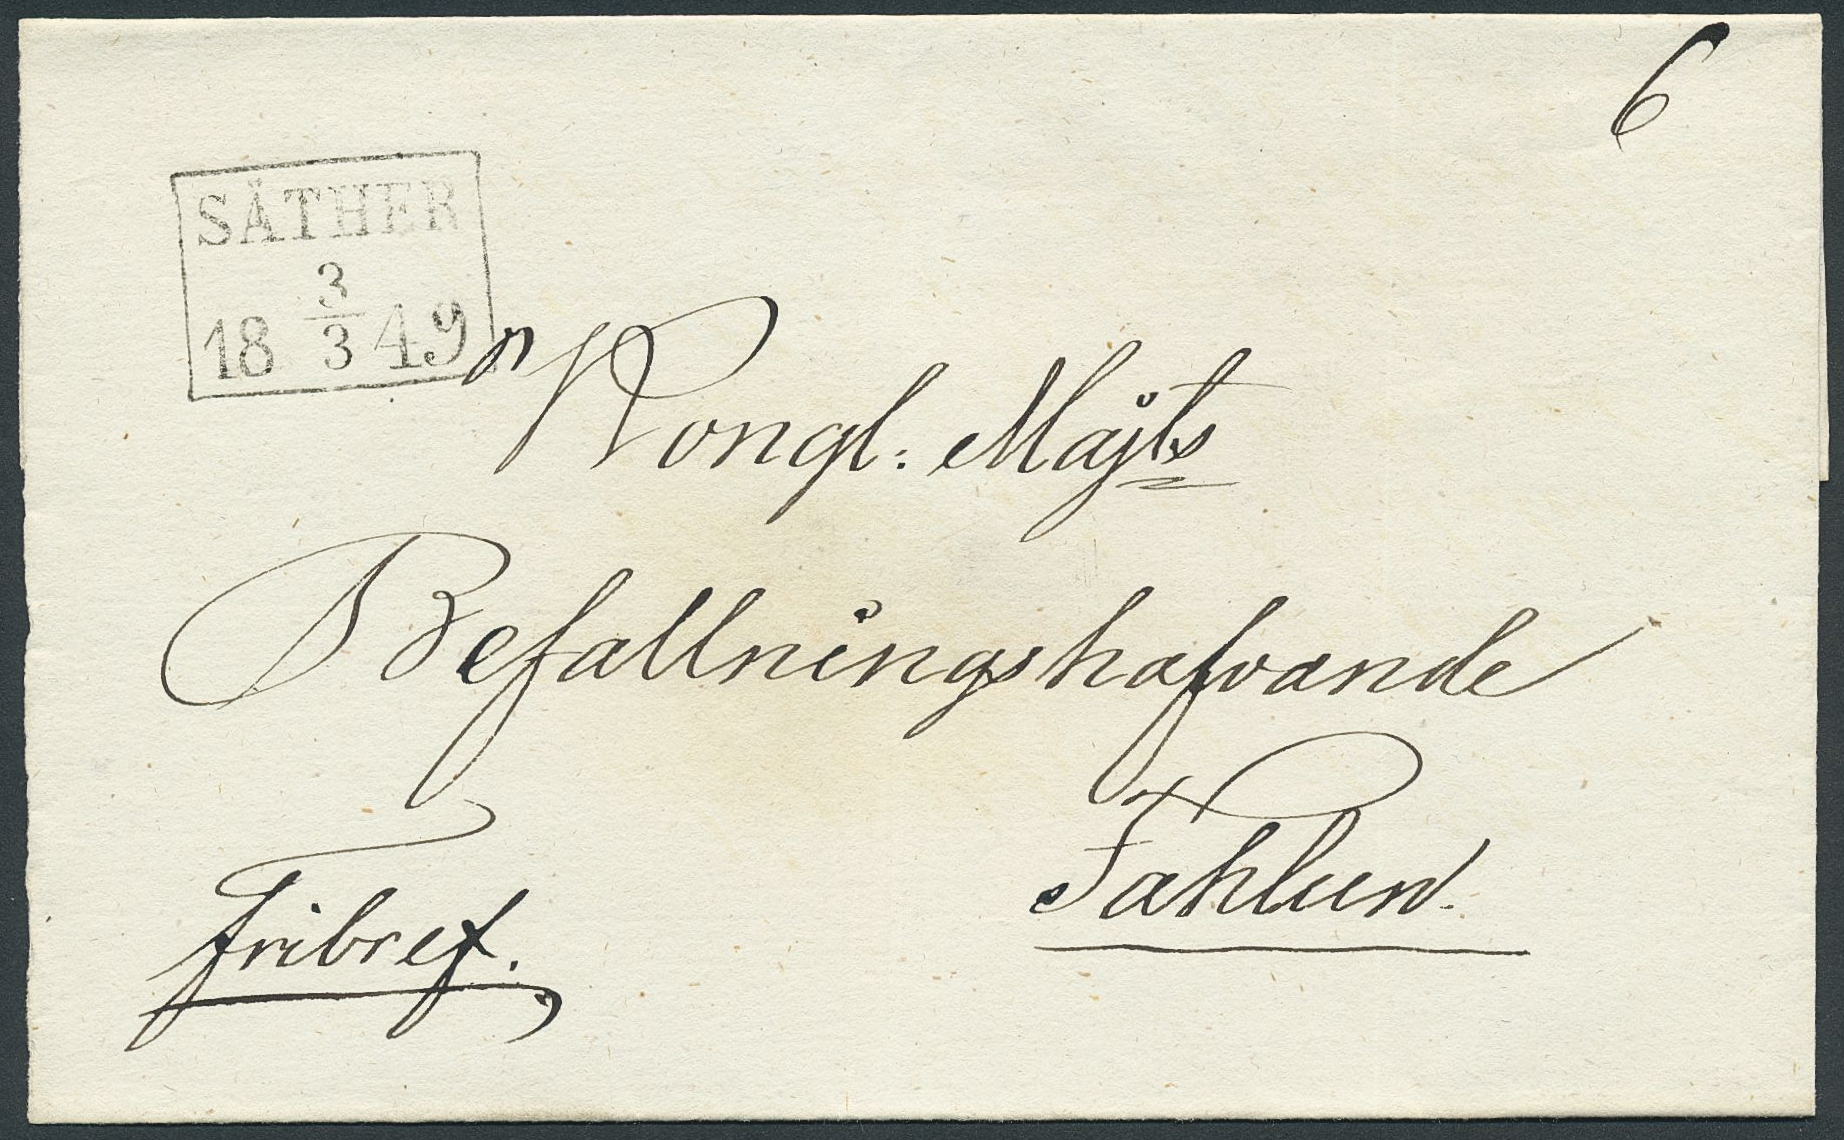 6
SÄTHER
3
18 3 49
Kongl: Majts
Befallningshafvande
Fahlun.
Fribref.